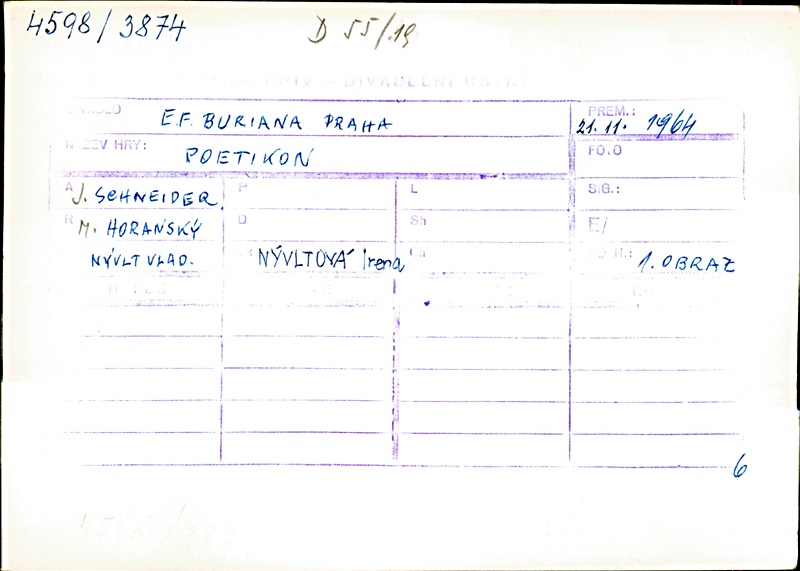 4598/3874
D 55/19
DIVADELNÍ ÚSTAV
DIVADLO E.F. BURIANA PRAHA
PREM.: 21.11. 1964
NÁZEV HRY: POETIKON
FO.O
A J. SCHNEIDER
P
L
SIG.:
R M. HORANSKÝ
D
Sh
E/
NÝVLT VLAD.
NÝVLTOVÁ Irena
1. OBRAZ
6